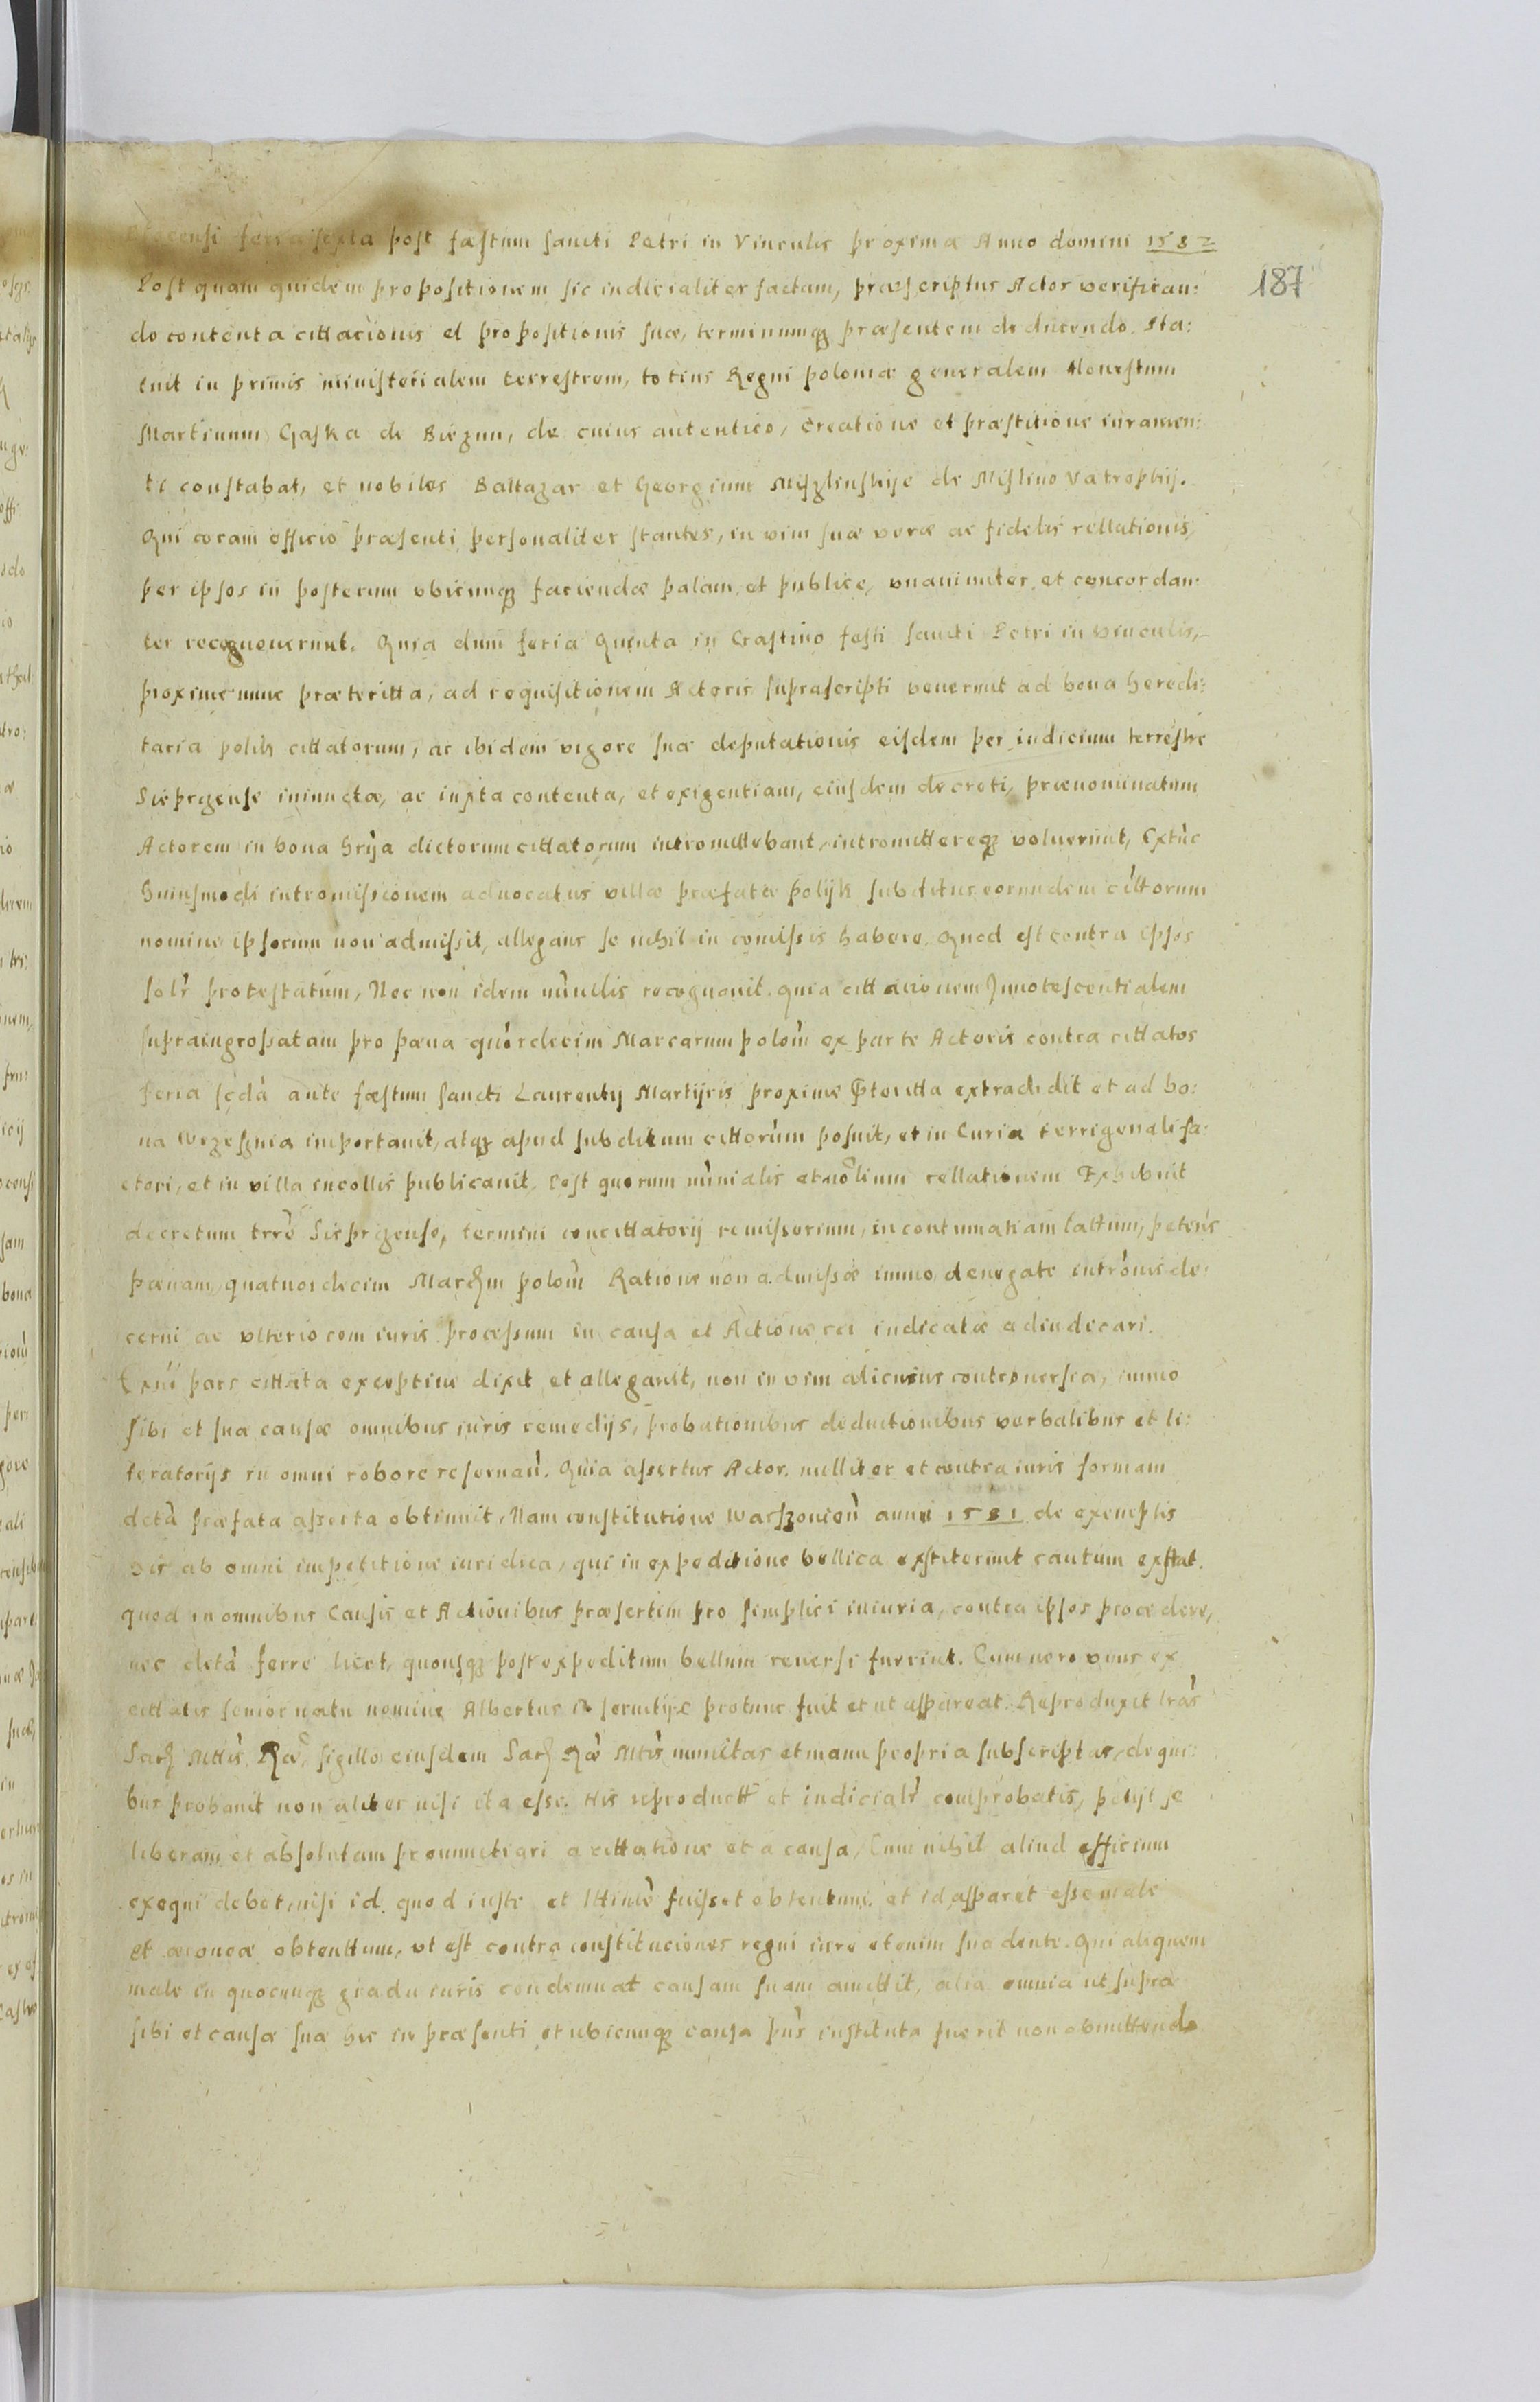 feria sexta post fæstum sancti Petri in Vinculis proxima Anno domini 1582
187
Post quam quidem propositionem sic iudicialiter factam, præscriptus Actor verifican:
do contenta cittacionis et propositionis suæ, terminumqꝫ præsentem deducendo. Sta:
tuit in primis ministerialem terrestrem, totius Regni poloniæ generalem Honestum
Martinum Gaska de Biezun, de cuius autentico, creatione et præstitione iuramen:
ti constabat, et nobiles Baltazar et Georgium de Mislino
Qui coram officio præsenti personaliter stantes, in vim suæ veræ ac fidelis rellationis,
per ipsos in posterum vbicunqꝫ faciendæ palam, et publice, vnanimiter, et concordan:
ter recognouerunt. Quia dum feria Quinta in Crastino festi sancti Petri in vinculis,
proxime nunc præteritta, ad requisitionem Actoris suprascripti venerunt ad bona heredi:
taria polik cittatorum, ac ibidem vigore suæ deputationis eisdem per iudicium terrestre
Sieprgense iniunctæ, ac iuxta contenta, et exigentiam, eiusdem decreti, prænominatum
Actorem in bona hrija dictorum cittatorum intromittebant, intromittereqꝫ voluerunt, Extũc
huiusmodi intromissionem aduocatus villæ præfatæ polijk subditus eorundem citto͠rum
nomine ipsorum non admissit, allegans se nihil in comissis habere. Quod est contra ipsos
sol͠r protestatum, Nec non idem recognouit. quia cittacionem Innotescentialem
supraingrossatam pro pæna quõrdecim Marcarum polõn ex parte Actoris contra cittatos
feria scdã ante fæstum sancti Laurentij Martijris proxime p̃teritta extradidit et ad bo:
na Wrzesznia importauit, atqꝫ apud subditum cittorũm posuit, et in Curia terrigenali fa:
ctori, et in villa incollis publicauit. Post quorum mĩnialis et nõlium rellationem Exhibuit
decretum trrẽ Sieprgense, termini concittatorij remissorium, in contumatiam lattum, petens
pænam, quatuordecim Marchm polõn Ratione non admissæ immo denegatæ intrõnis de:
cerni ac vlteriorem iuris processum in causa et Actione rei iudicatæ adiudicari.
pars cittata exceptiue dixit et allegauit, non in vim alicuius controuersiæ, immo
sibi et suæ causæ omnibus iuris remedijs, probationibus deductionibus verbalibus et li:
teratorijs in omni robore reseruañ. Quia assertus Actor, nulliter et contra iuris formam
detã præfata asserta obtinuit, Nam constitutione Warszouieñ anni 1581 de exemptis
his ab omni impetitione iuridica, qui in expeditione bellica exstiterunt cautum exstat.
quod in omnibus Causis et Actionibus præsertim pro simplici iniuria, contra ipsos procedere,
nec detã ferre licet, quousqꝫ post expeditum bellum reuersi fuerint. Cum vero vnus ex
cittatis senior natu nomine Albertus in seruitijs protunc fuit et ut appareat. Reproduxit lrãs
Mttis Rã sigillo eiusdem Rã Mttis munitas et manu propria subscriptas, de qui:
bus probauit non aliter nisi ita esse. His et iudicialr̃ comprobatis, petijt se
liberam et absolutam pronunctiari a cittatione et a causa, Cum nihil aliud officium
exequi debet, nisi id, quod iuste et lttime fuisset obtentum, et id apparet esse male
et obtenttum, vt est contra constituciones regni iure etenim suadente. Qui aliquem
male in quocunqꝫ gradu iuris condemnat causam suam amittit, alia omnia ut supra
sibi et causæ suæ hic in præsenti et ubicunqꝫ causa instituta fuerit non obmittendo